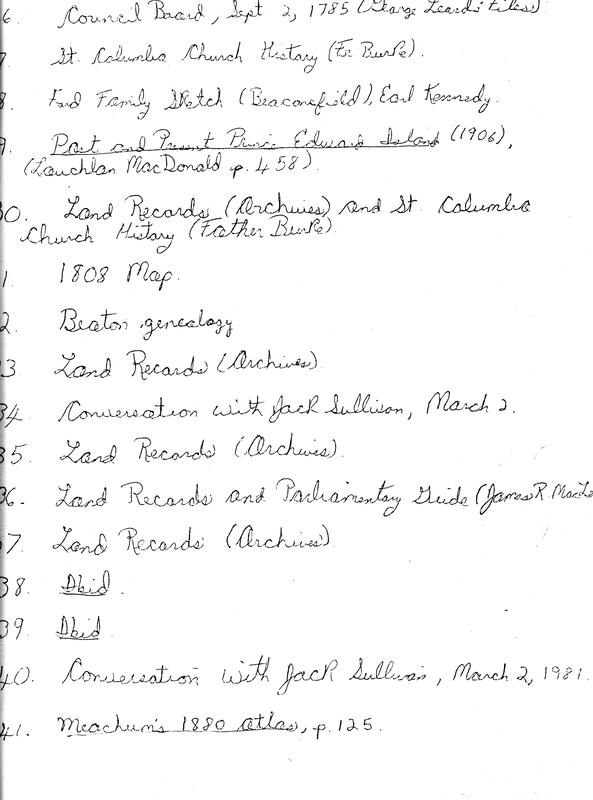 6. Council Board, Sept 2, 1785 (George Leard's Files)
7. St. Columba Church History (Fr Burke).
8. Ford Family Sketch (Beaconsfield), Earl Kennedy.
9. Past and Present Prince Edward Island (1906),
(Lauchlan MacDonald p. 458).
30. Land Records (Archives) and St. Columba
Church History (Father Burke).
1. 1808 Map.
2. Beaton genealogy
3 Land Records (Archives)
34 Conversation with Jack Sullison, March 2.
35. Land Records (Archives).
36. Land Records and Parliamentary Guide (James R.
37. Land Records (Archives)
38. Ibid.
39. Ibid
40. Conversation with Jack Sullivan, March 2, 1981.
41. Meachum's 1880 atlas, p. 125.